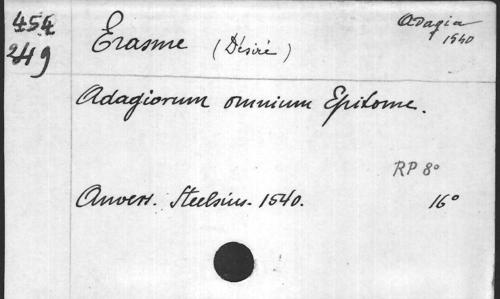 454
249
Erasme (Désiré)
Adagia
1540
Adagiorum omnium Epitome.
RP 8°
Anvers. Steelsius. 1540. 16°